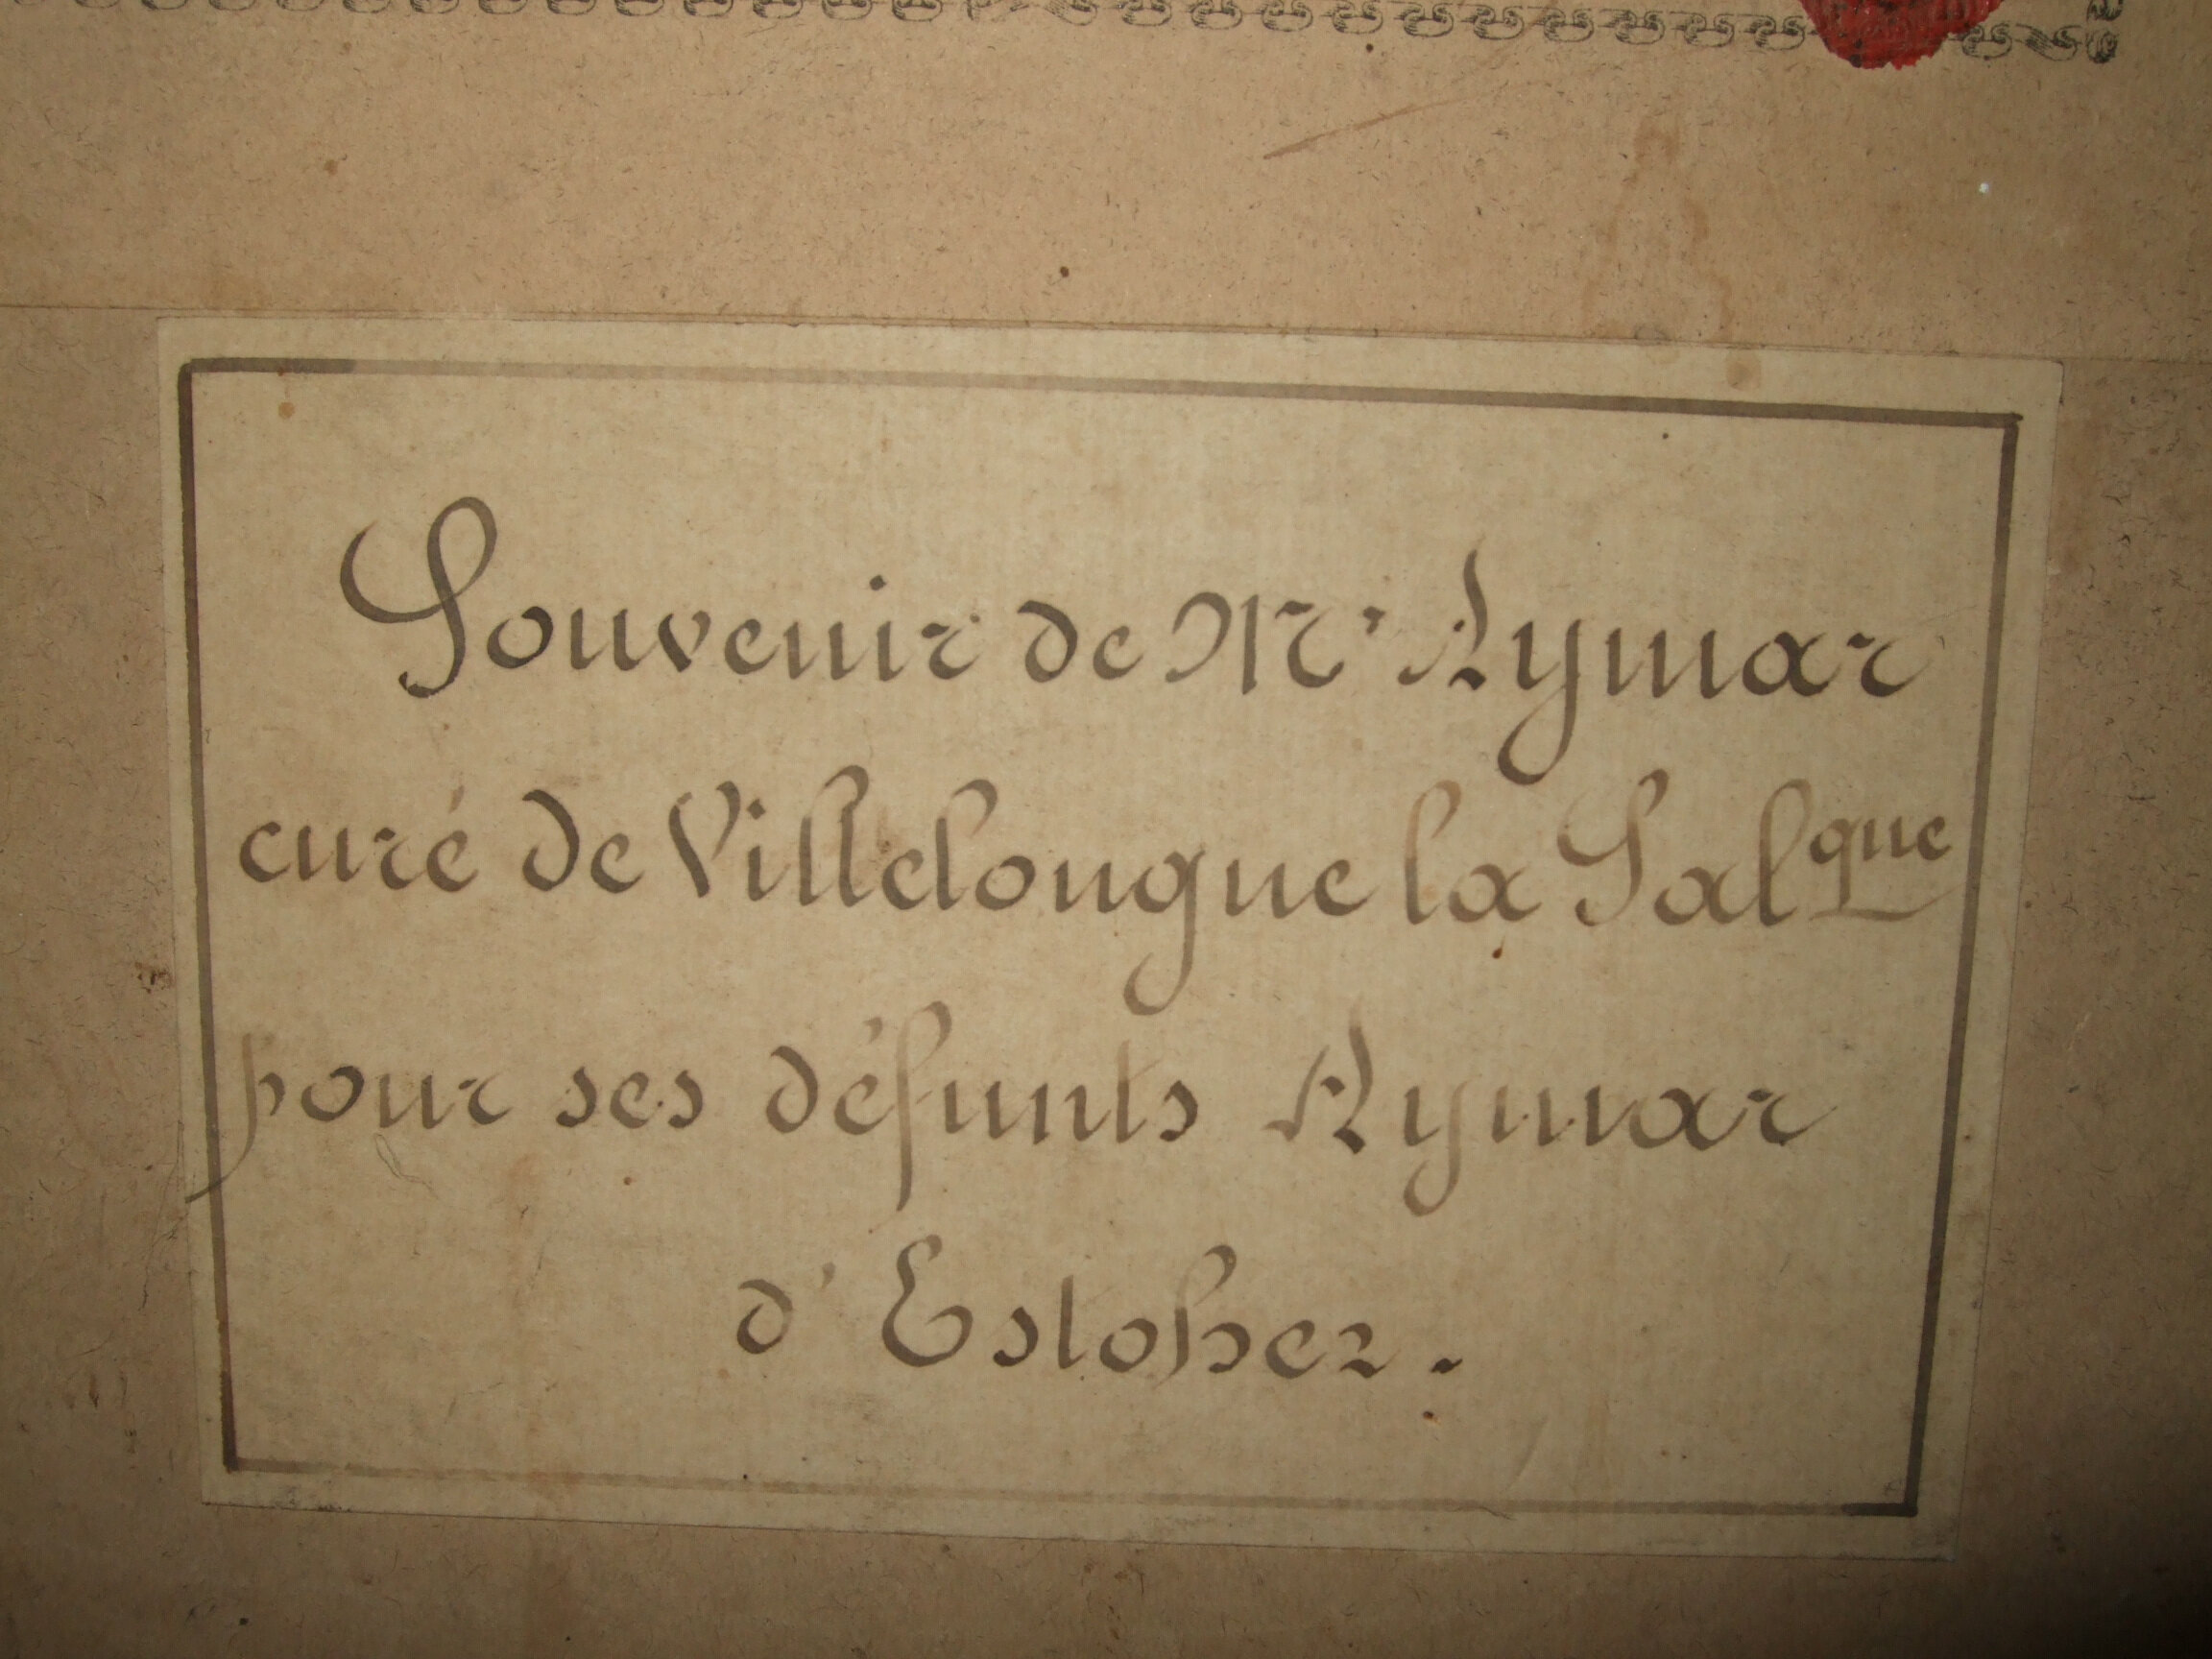 Souvenir de Mr Aymar
curé de Villelongue la Salque
pour ses défunts Aymar
d'Estoher.